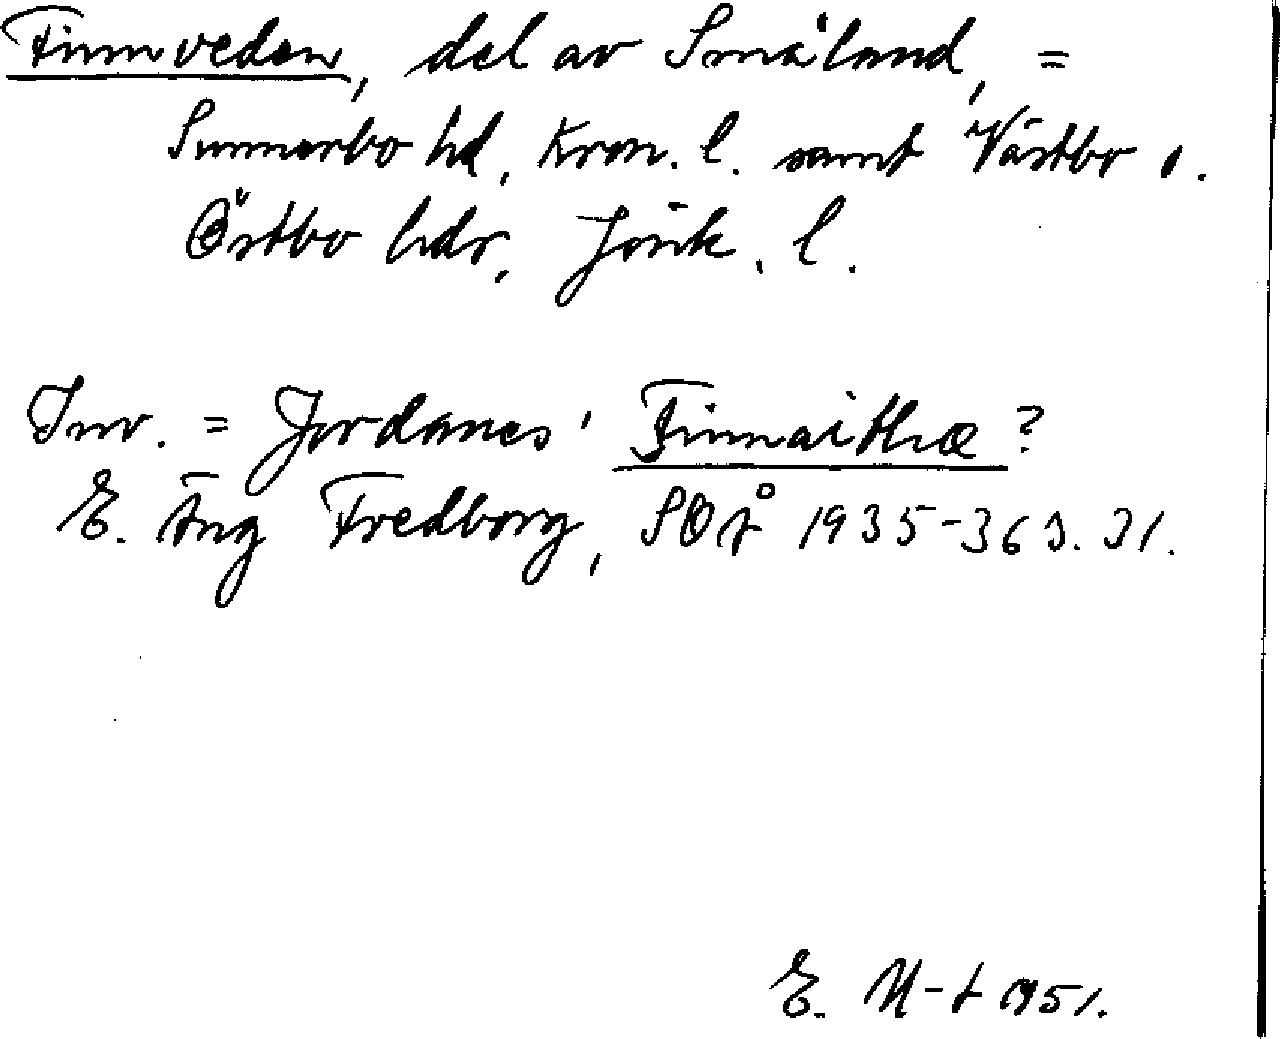 Finnveden, del av Småland, =
Sunnerbo hd, Kron. l. samt Västbo o.
Östbo hdr, Jönk. l.
Inv. = Jordanes' Finnaithae?
E. Äng Fredborg, SOÅ 1935-36 s. 31.
E. 1951.